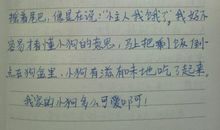 摇着尾巴，像是在说："小主人我饿了"。我好不
容易才懂小狗的意思，马上把剩饭倒
点在狗盆里，小狗有滋有味地吃了起来。
我家的小狗多么可爱啊！